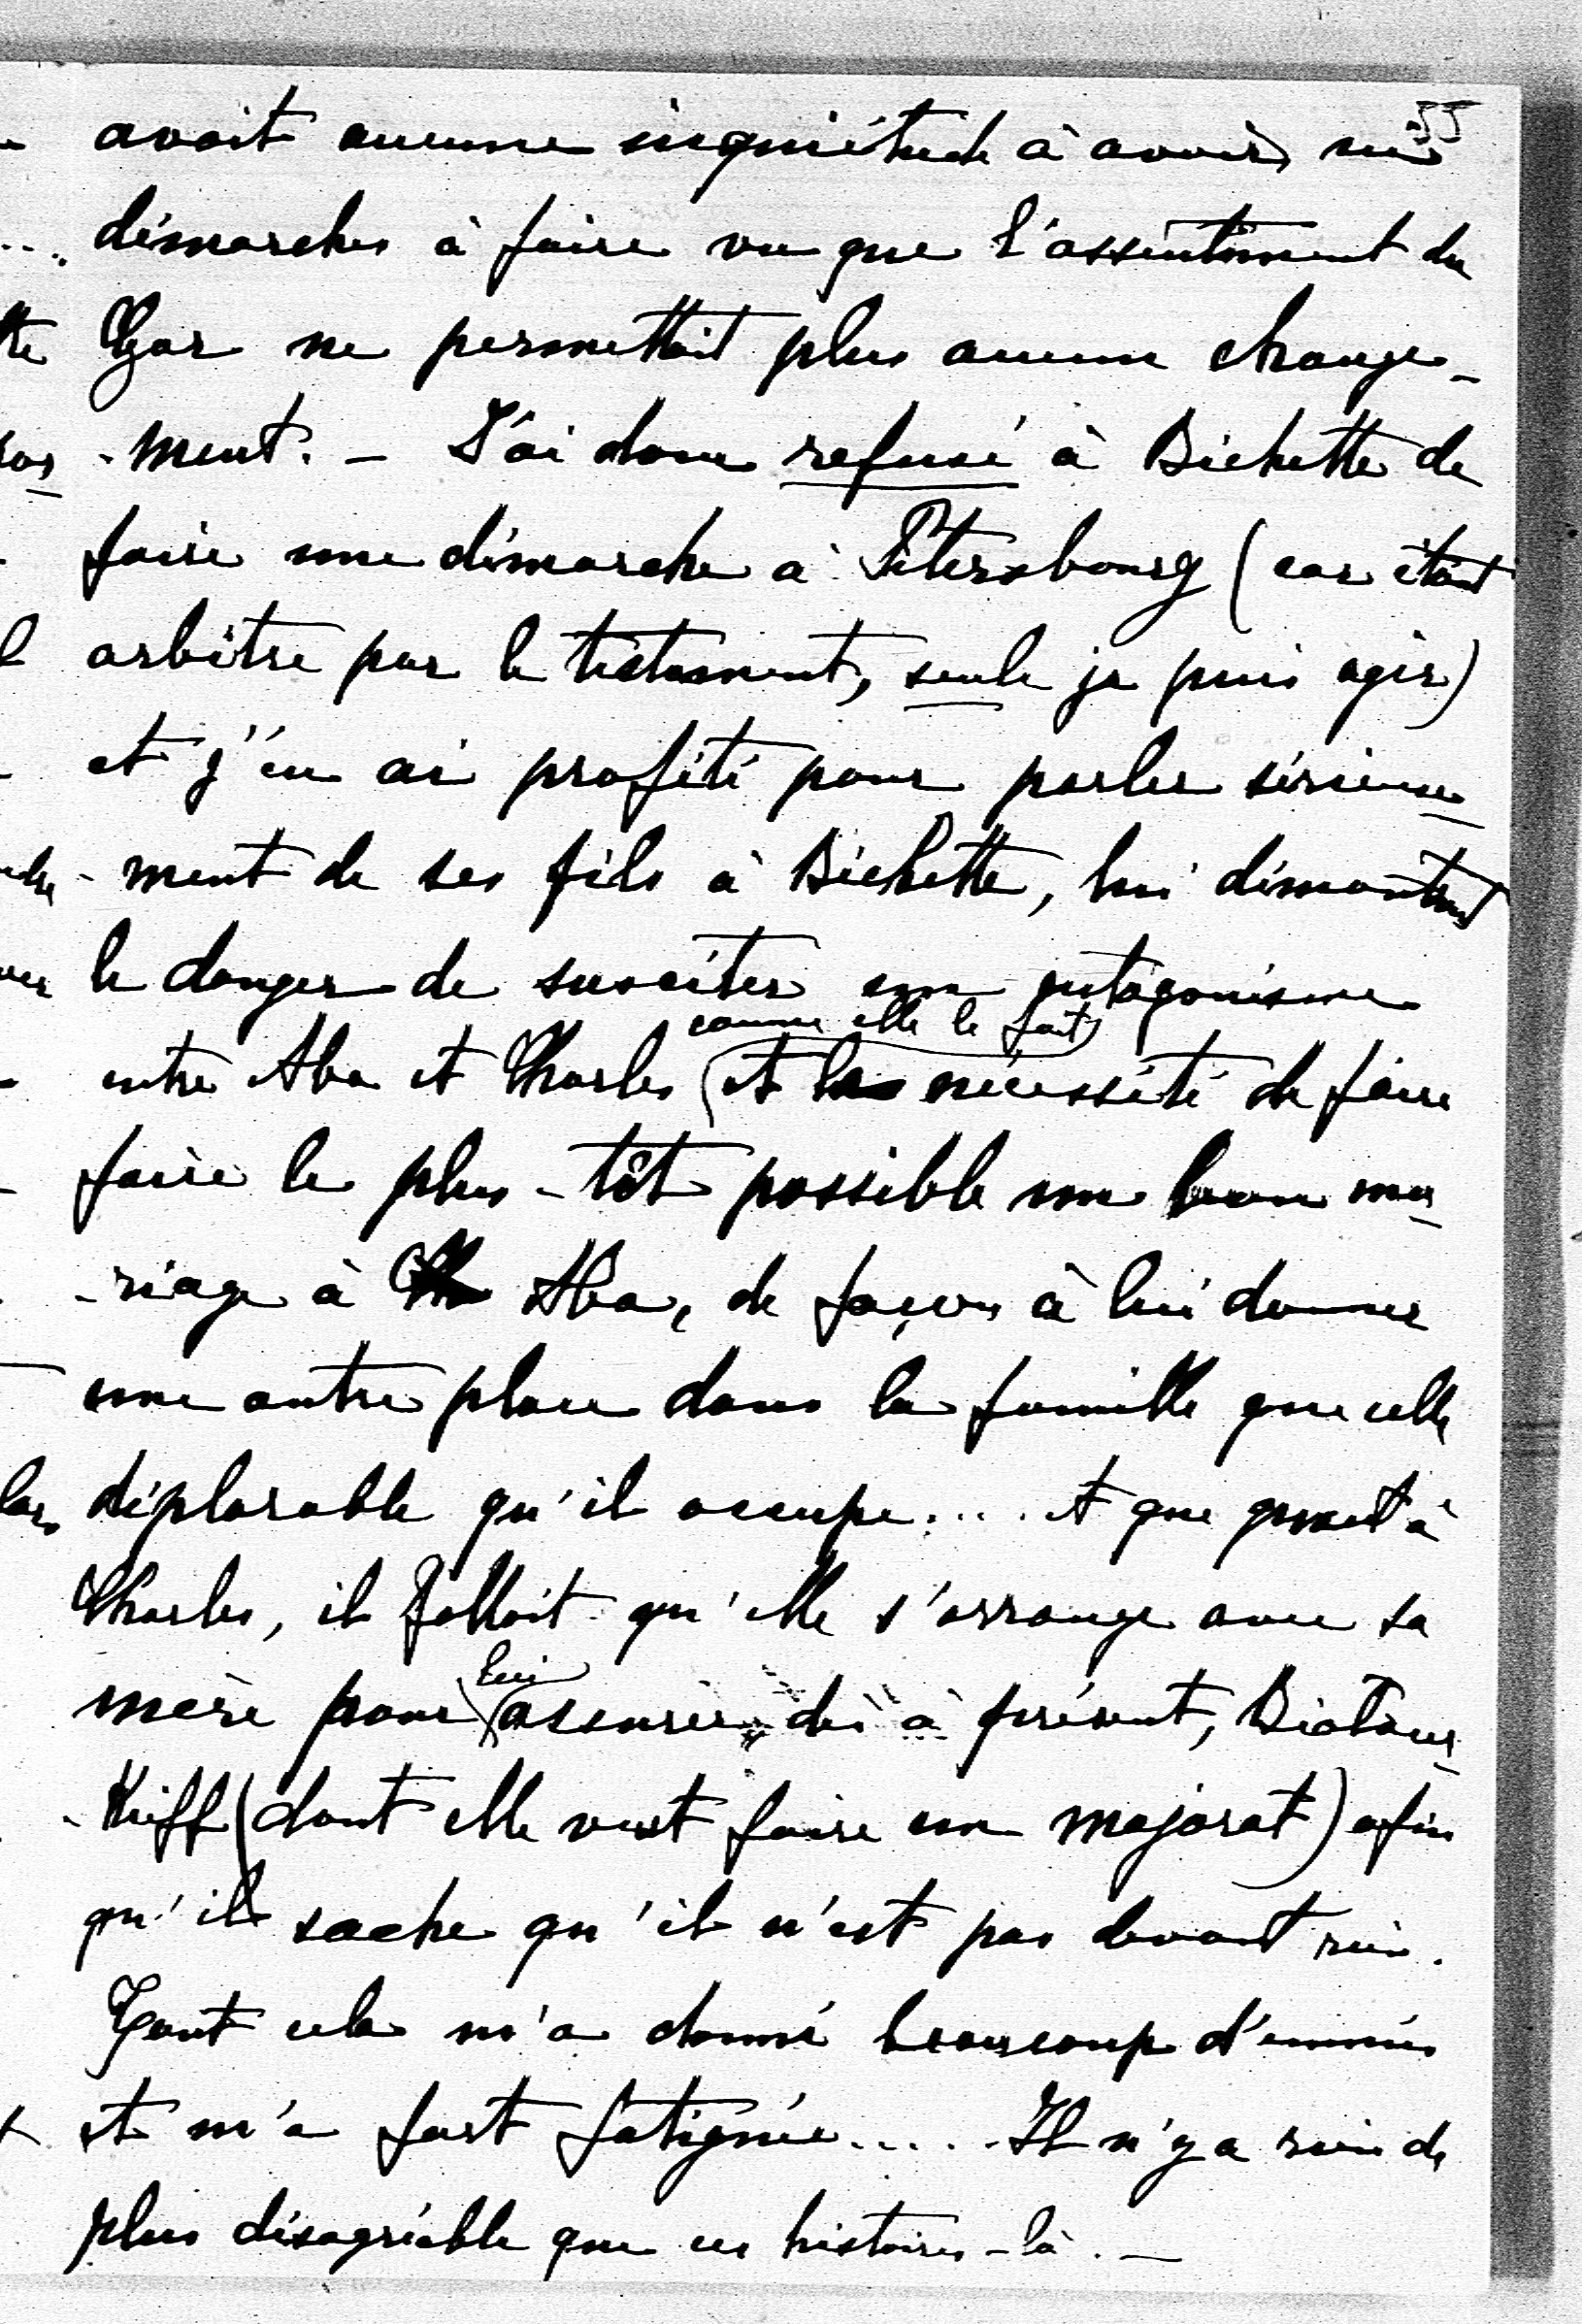 55
avait aucune inquiétude à avoir, ni
démarches à faire vu que l'assentiment du
Czar ne permettait plus aucun change-
-ment. – J'ai donc refusé à Bichette de
faire une démarche à Pétersbourg (car étant
arbitre par le testament, seule je puis agir)
et j'en ai profité pour parler sérieuse
-ment de ses fils à Bichette, lui démontrant
le danger de susciter un antagonisme
comme elle le fait
entre Aba et Charles et la nécessité de faire
faire le plus-tôt possible un bon ma
-riage à Ch Aba, de façon à lui donner
une autre place dans la famille que celle
déplorable qu'il occupe.... et que quant à
Charles, il fallait qu'elle s'arrange avec sa
lui
mère pour assurer dès à présent, Biatacer
-Kieff (dont elle veut faire un majorat) afin
qu'il sache qu'il n'est pas devant rien.
Tout cela m'a donné beaucoup d'ennuis
et m'a fort fatiguée..... Il n'y a rien de
plus désagréable que ces histoires-là. –